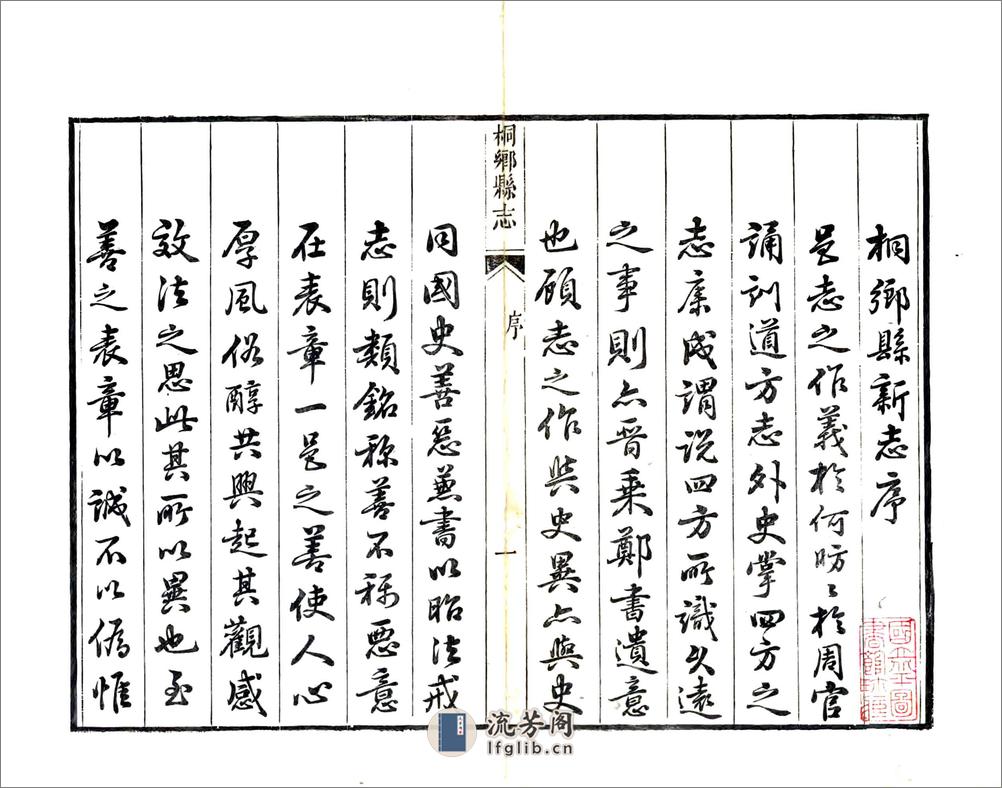 桐鄉縣新志序
邑志之作義於何昉昉於周官
誦訓道方志外史掌四方之
志康成謂說四方所識久遠
之事則亦晉乘鄭書遺意
也顧志之作與史異亦與史
桐鄉縣志
序
一
同國史善惡兼書以昭法戒
志則類銘稱善不稱惡意
在表章一邑之善使人心
厚風俗醇共興起其觀感
效法之思此其所以異也至
善之表章以誠不以偽惟
流芳阁
lfglib.cn